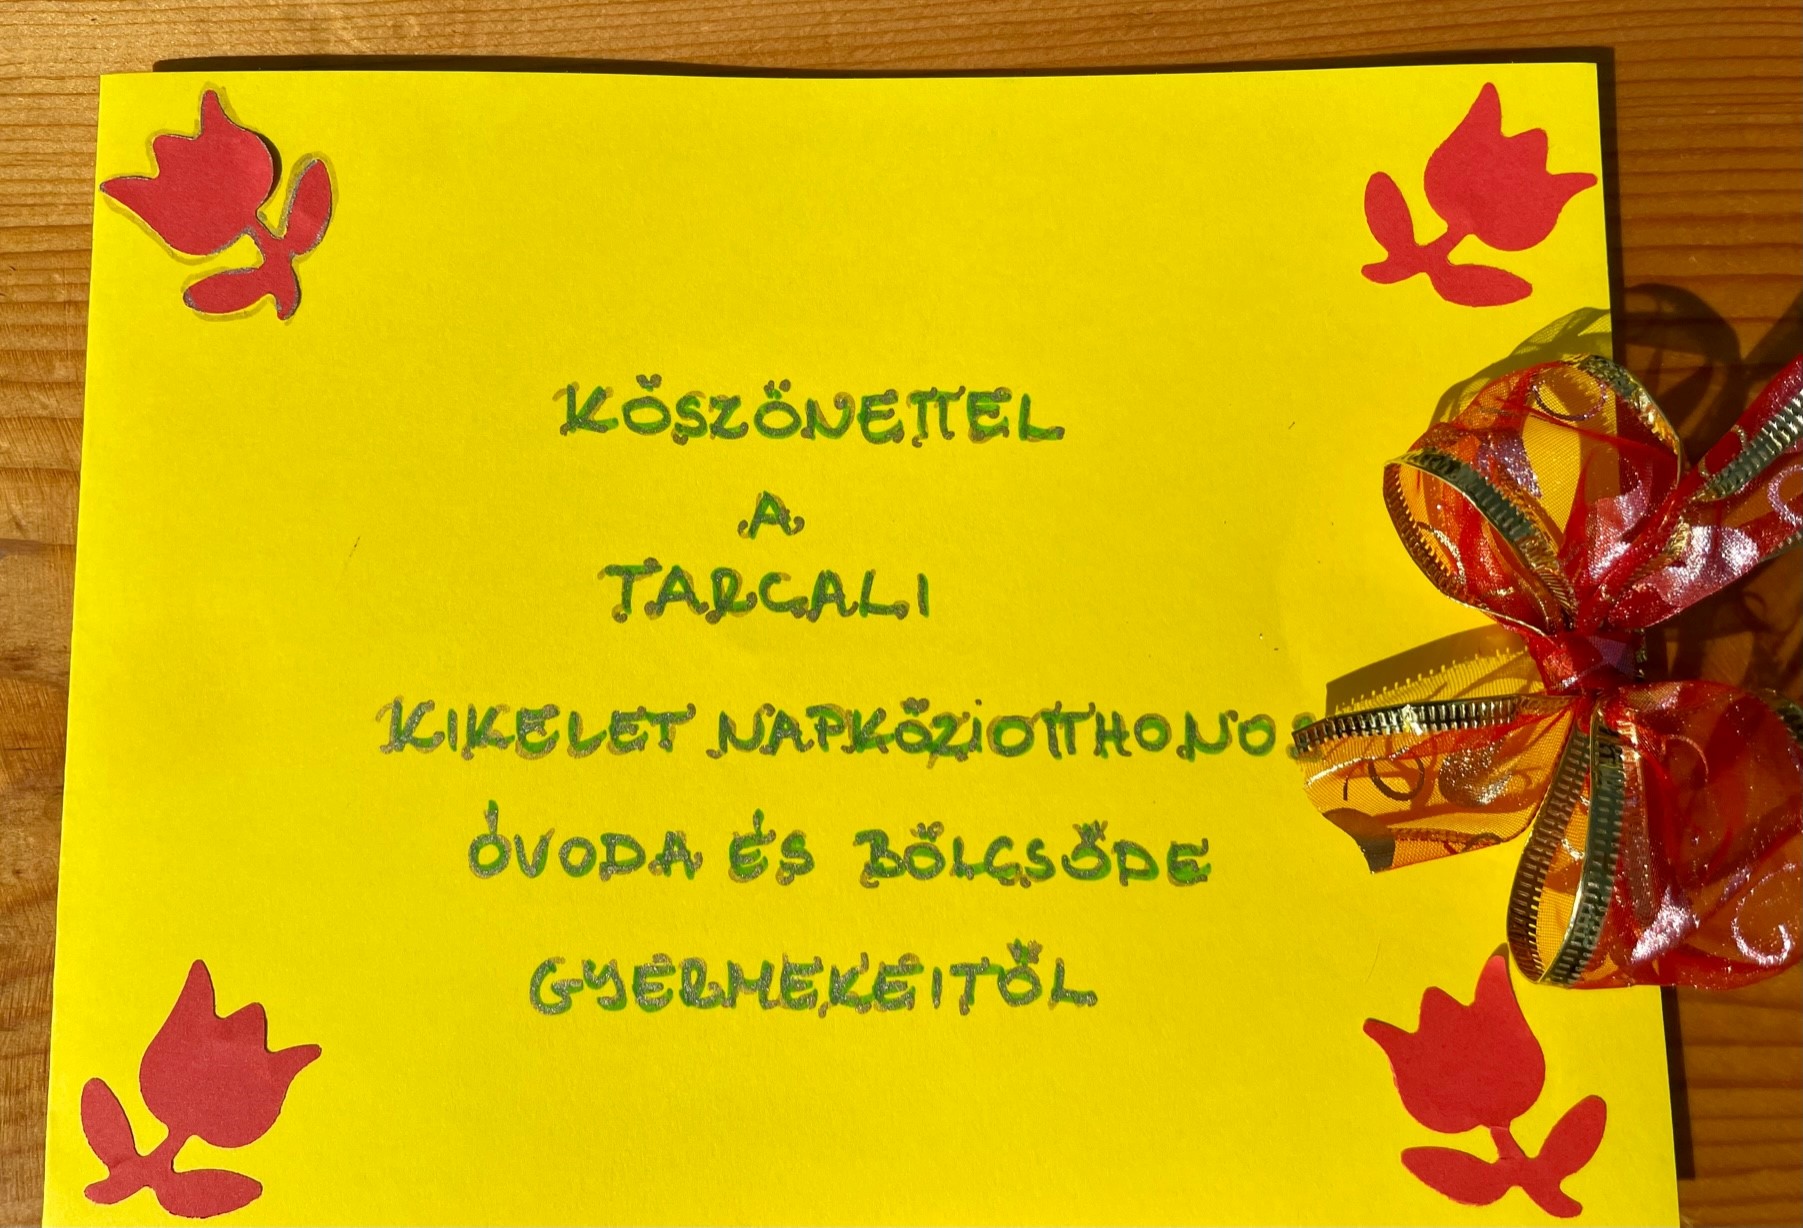 KÖSZÖNETTEL
A
TARCALI
KIKELET NAPKÖZIOTTHONOS
ÓVODA ÉS BÖLCSŐDE
GYERMEKEITŐL